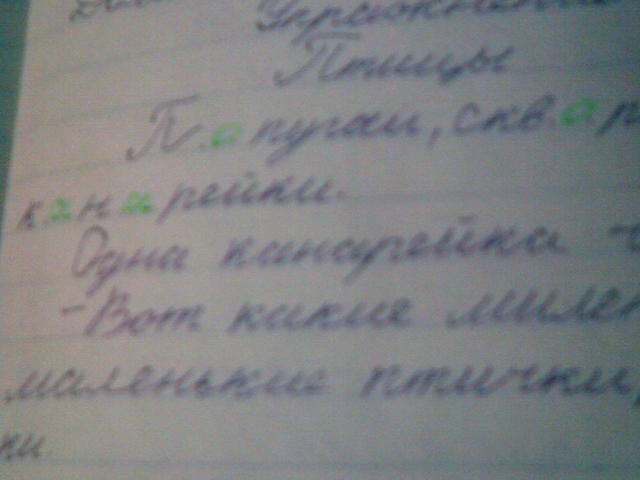 Упражнение
Птицы
П.опугаи, скв.ор
к.ан.арейки.
Одна канарейка -
-Вот какие милень
маленькие птички,
ки.